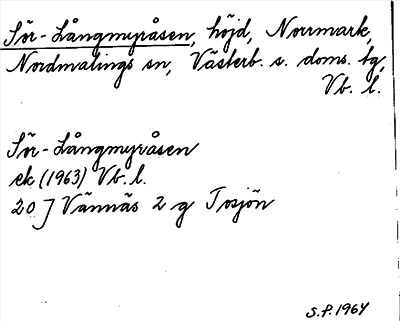 Sör-Långmyråsen, höjd, Norrmark,
Nordmalings sn, Västerb. s. doms. tg,
Vb. l.
Sör-Långmyråsen
ek (1963) Vb. l.
20 J Vännäs 2 g Tosjön
S.P. 1964